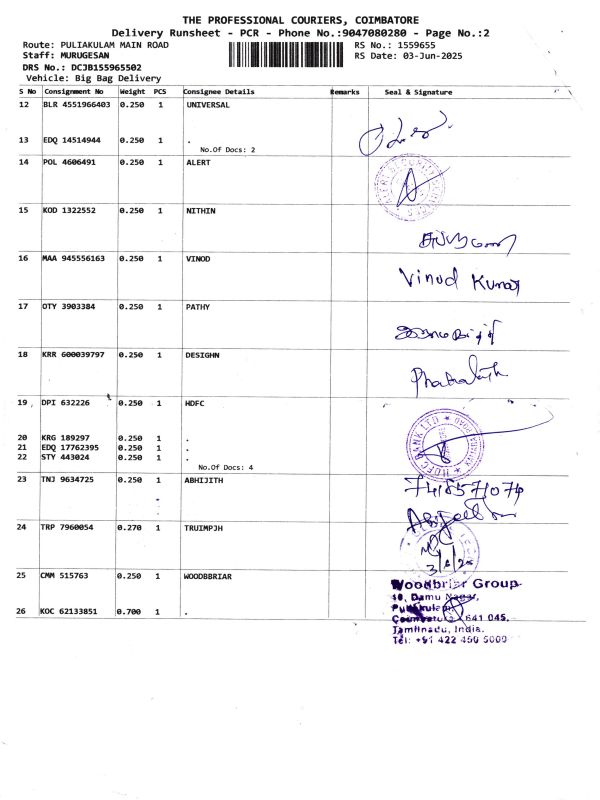 THE PROFESSIONAL COURIERS, COIMBATORE
Delivery Runsheet - PCR - Phone No.:9047080280 - Page No.:2
Route: PULIAKULAM MAIN ROAD RS No.: 1559655
Staff: MURUGESAN RS Date: 03-Jun-2025
DRS No.: DCJB155965502
Vehicle: Big Bag Delivery
S No Consignment No Weight PCS Consignee Details Remarks Seal & Signature
12 BLR 4551966403 0.250 1 UNIVERSAL
13 EDQ 14514944 0.250 1 .
No.Of Docs: 2
14 POL 4606491 0.250 1 ALERT
15 KOD 1322552 0.250 1 NITHIN
16 MAA 945556163 0.250 1 VINOD
Vinod Kumar
17 OTY 3903384 0.250 1 PATHY
18 KRR 600039797 0.250 1 DESIGHN
19 DPI 632226 0.250 1 HDFC
HDFC BANK LTD
20 KRG 189297 0.250 1 .
21 EDQ 17762395 0.250 1 .
22 STY 443024 0.250 1 .
No.Of Docs: 4
23 TNJ 9634725 0.250 1 ABHIJITH
7418571074
24 TRP 7960054 0.270 1 TRUIMPJH
3/6/25
25 CMM 515763 0.250 1 WOODBBRIAR
Woodbriar Group
Damu Nagar,
Puliakulam
26 KOC 62133851 0.700 1 .
Coimbatore 641 045.
Tamilnadu, India.
Tel: +91 422 450 5000